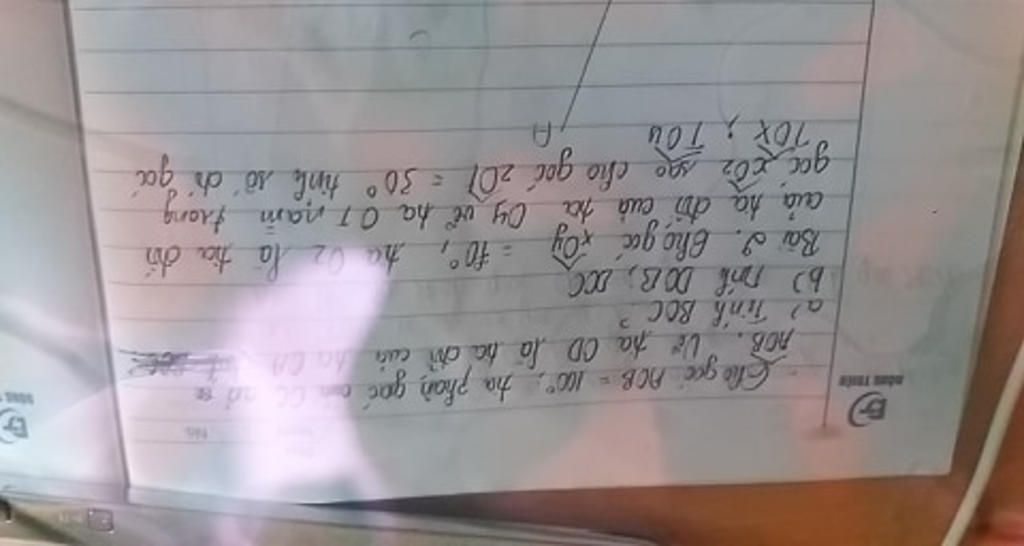 HỒNG TRIỀU
No.
Cho góc AOB = 100°, tia phân giác
AOB. Vẽ tia OD là tia đối của tia OA
a) Tính BOC?
b) Tính DOB; DOC
Bài 2. Cho góc xOy = 70°, tia Oz là tia đối
của tia đối của tia Oy vẽ tia OT nằm trong
góc xOz sao cho góc zOT = 30° tính số đo góc
TOx; TOy
A